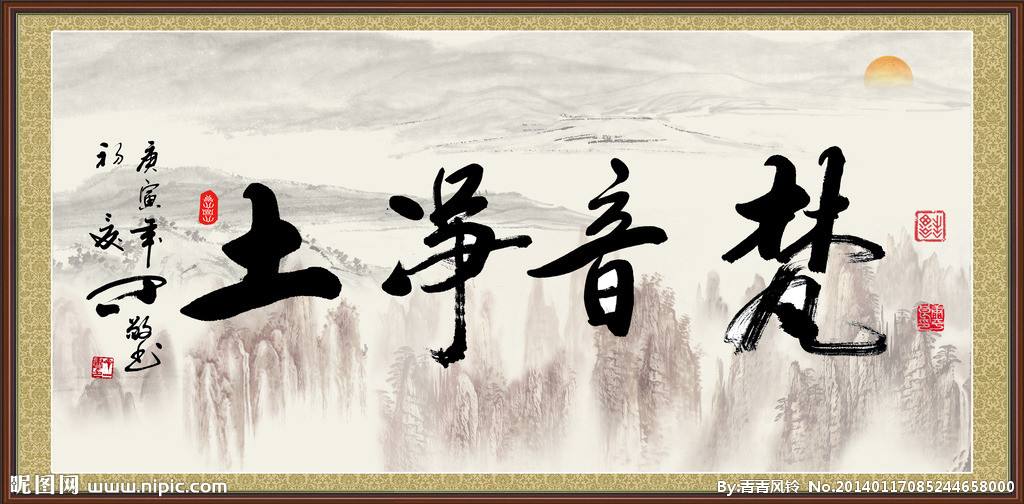 梵音净土
庚寅年
初夏
敬书
昵图网 www.nipic.com
By:青青风铃 No.20140117085244658000